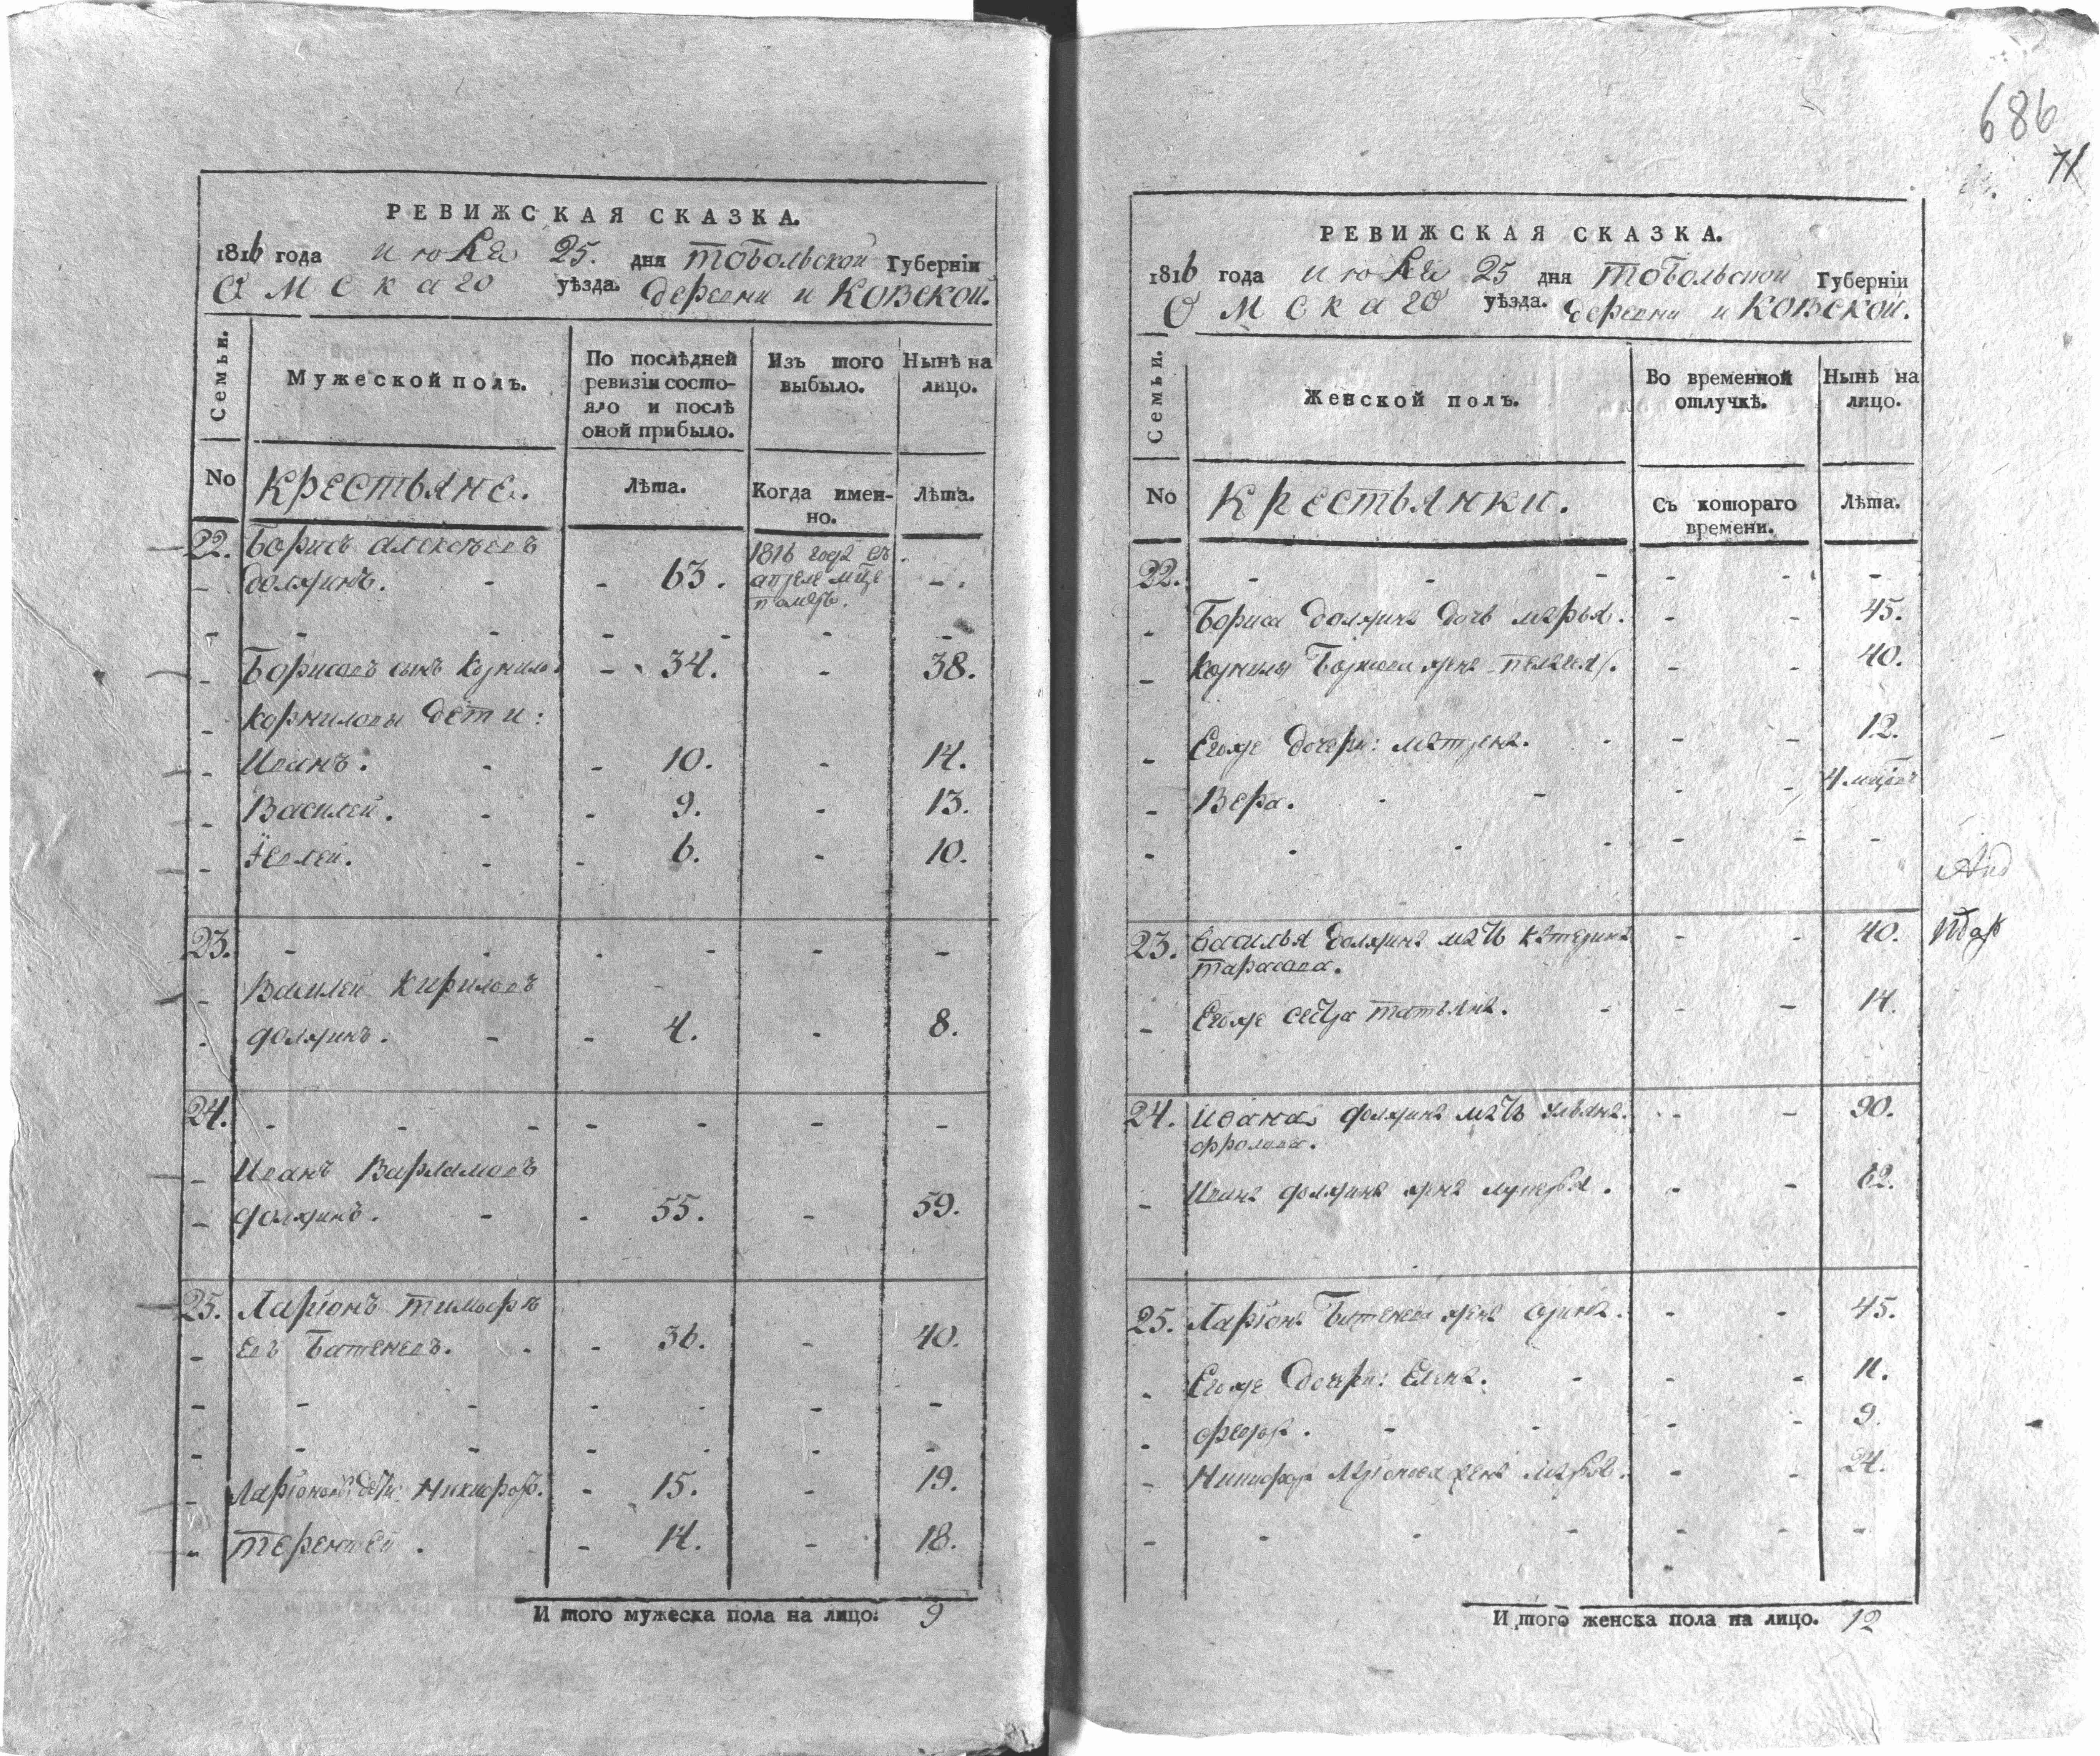 РЕВИЖСКАЯ СКАЗКА.
1816 года июня 25. дня Тобольской Губернiи
Омскаго уѣзда. деревни иковской.
Семьи.
Мужеской полъ.
По послѣдней ревизiи состояло и послѣ оной прибыло.
Изъ того выбыло.
Нынѣ на лицо.
No
крестьяне.
Лѣта.
Когда именно.
Лѣта.
22. Борисъ алексѣевъ
должинъ. - - 63. 1816 года въ апреле мце померъ. - .
Борисовъ сынъ Корнило - 34. - 38.
корниловы дети:
Иванъ. - - 10. - 14.
Василей. - - 9. - 13.
Iевлей. - - 6. - 10.
23. - - - - - -
Василей Кириловъ
должинъ. - - 4. - 8.
24. - - - - - - -
Иванъ Варламовъ
должинъ. - - 55. - 59.
25. Ларiонъ тимоф
евъ Батеневъ. - - 36. - 40.
Ларiоновы дети: Никифоръ. - 15. - 19.
терентей. - 14. - 18.
И того мужеска пола на лицо. 9
686
71
РЕВИЖСКАЯ СКАЗКА.
1816 года июня 25 дня Тобольской Губернiи
Омскаго уѣзда. деревни иковской.
Семьи.
Женской полъ.
Во временной отлучкѣ.
Нынѣ на лицо.
No
крестьянки.
Съ котораго времени.
Лѣта.
22. - - - - - -
Бориса должина дочь марья. - - 45.
корнилы Борисова жена пелагея. - - 40.
Егоже дочери: матрена. - - - 12.
Вера. - - - - 4 мцовъ
23. Василья должина мать катерина - - 40.
тарасова.
Егоже сестра татьяна. - - - 14.
24. Ивана должина мать ульяна. - - 90.
фролова.
Ивана должина жена лукерья. - - 62.
25. Ларiона Батенева жена орина. - - 45.
Егоже дочери: Елена. - - - 11.
федора. - - - - 9.
Никифора Ларiонова жена марья. - - 24.
И того женска пола на лицо. 12